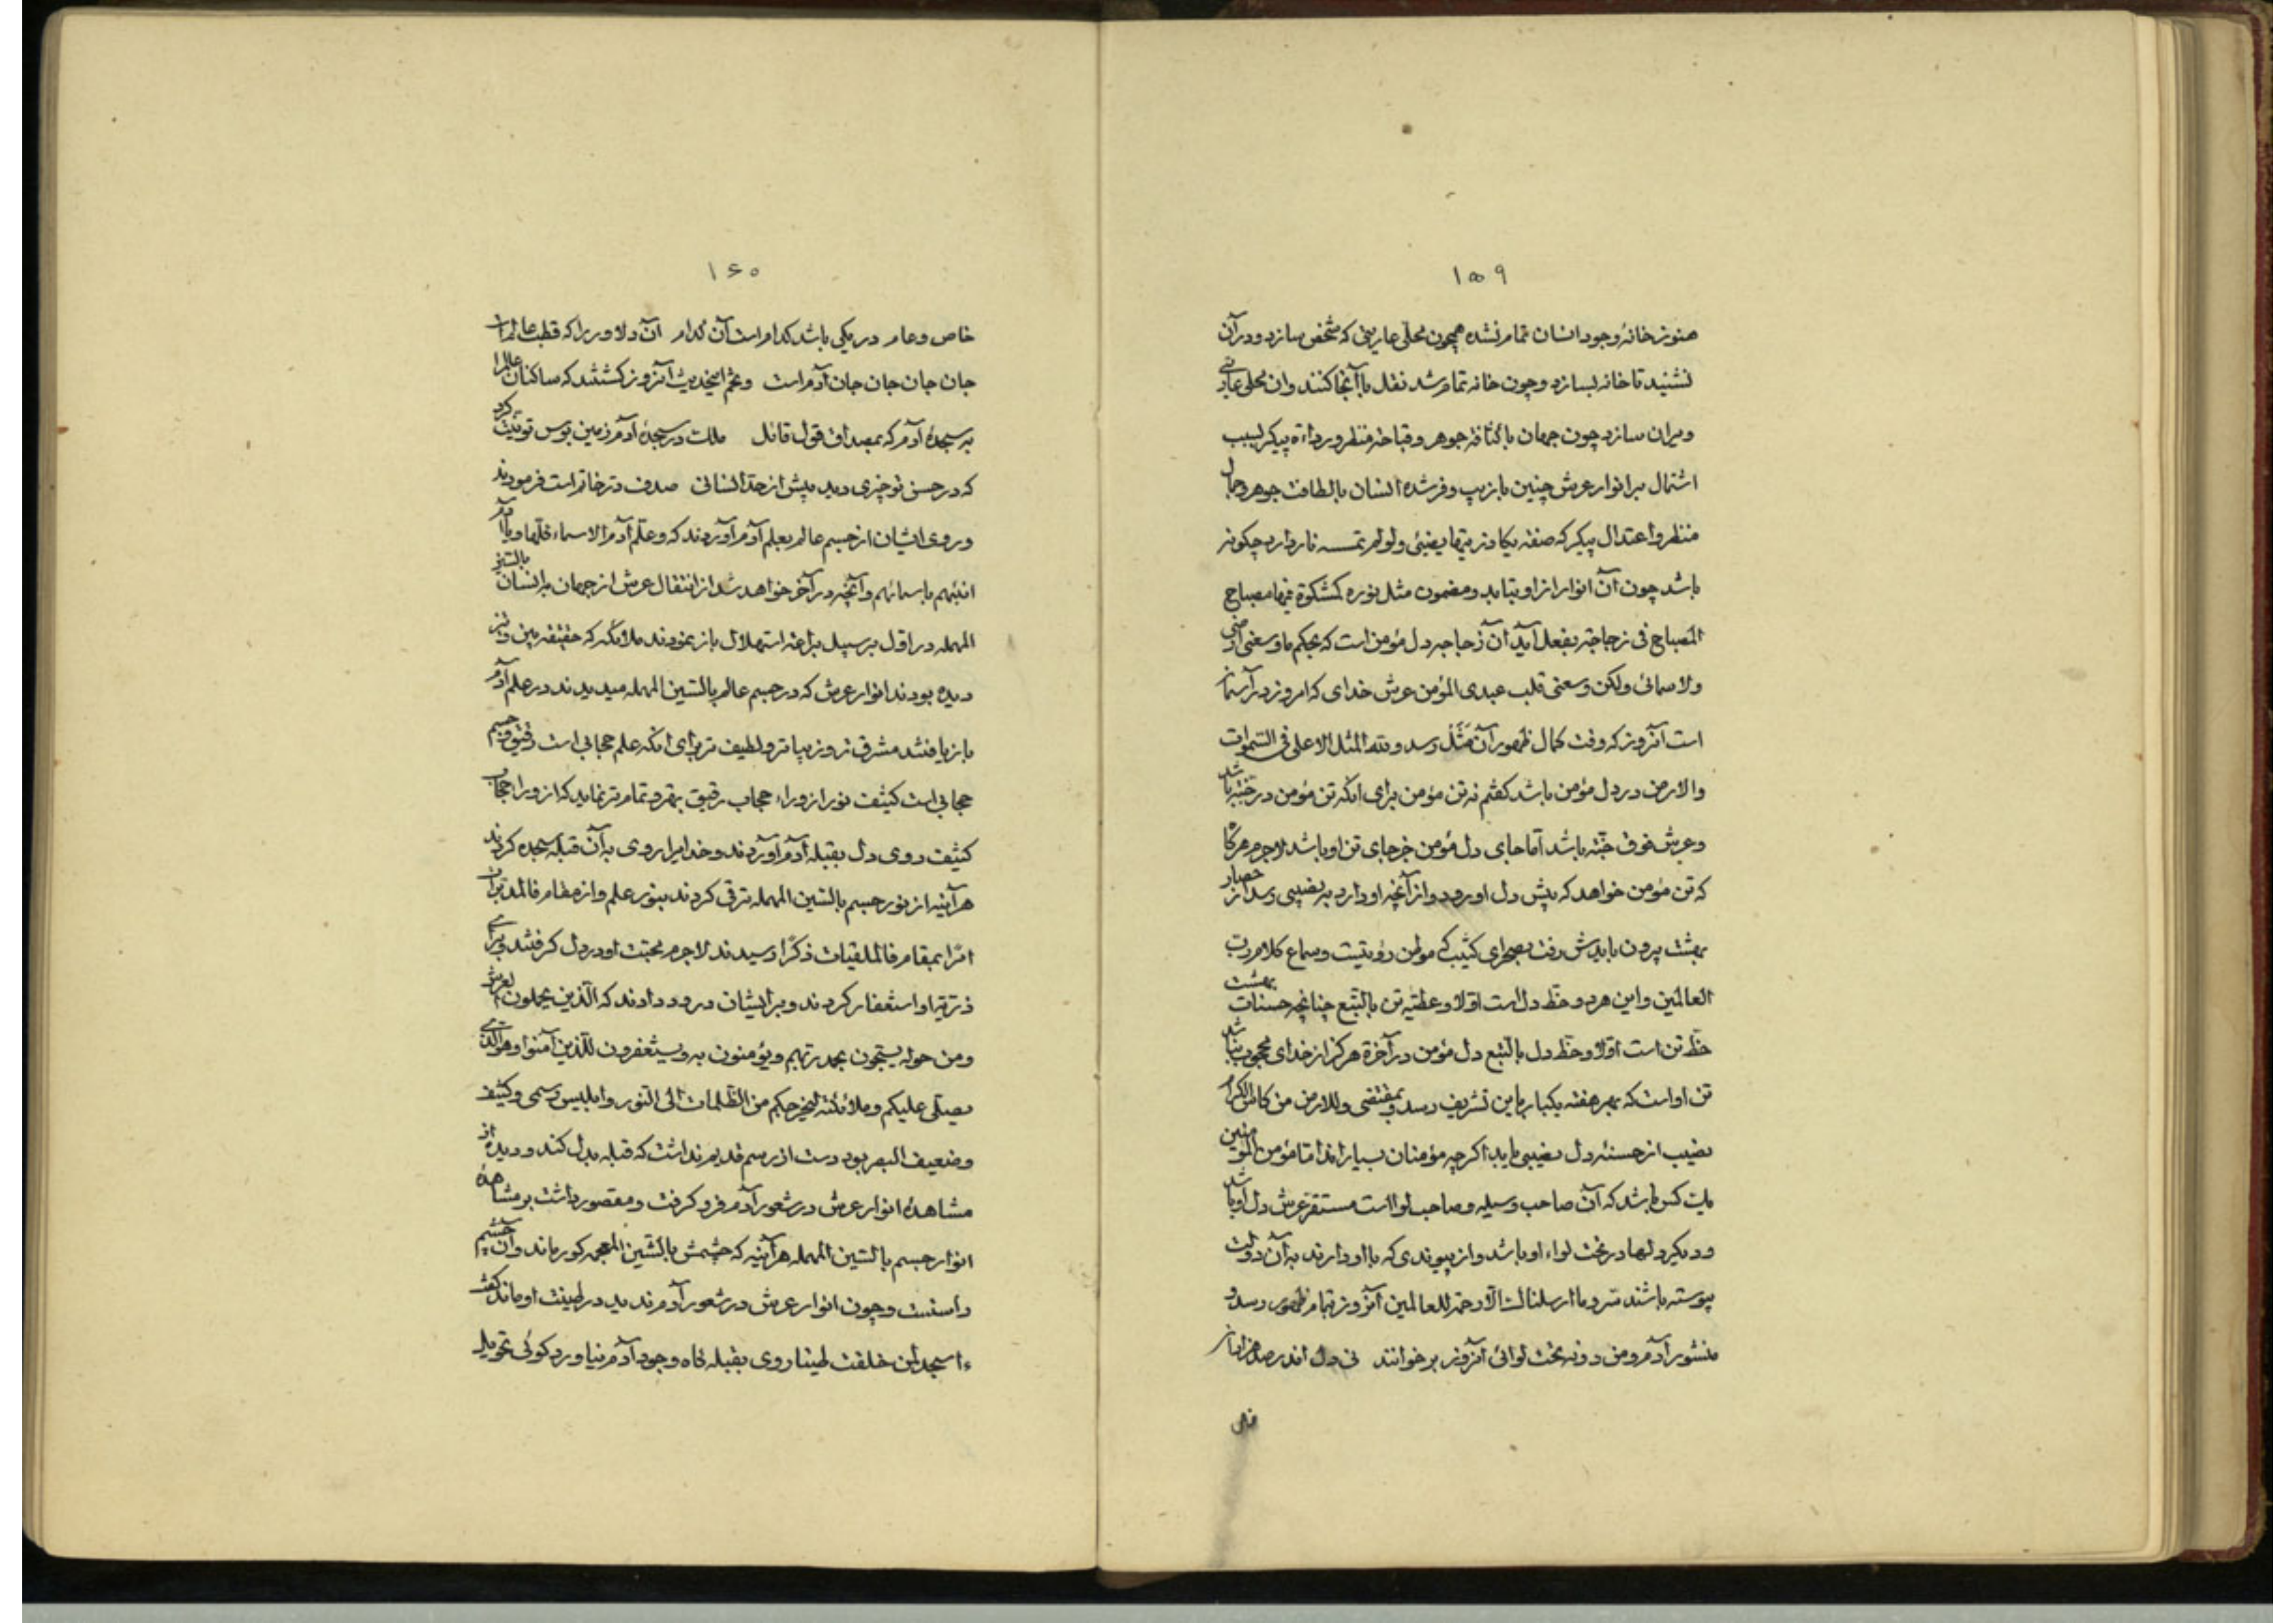 ۱۵۹
هنوز خانهٔ وجود انسان تمام نشده همچون محلّی عاریتی که شخص سازد و در آن
نشیند تا خانه بسازد و چون خانه تمام شد نقل با آنجا کنند و آن محلّی عاریتی
ویران سازد چون جهان با کثافة جوهر و قباحة منظر و رداءة پیکر بسبب
اشتمال بر انوار عرش چنین با زیب و فر شده انسان با لطافت جوهر و جمال
منظر و اعتدال پیکر که صفة یکاد زیتها یضیئی و لو لم تمسسه نار دارد چگونه
باشد چون آن انوار از او بتابد و مضمون مثل نوره کمشکوة فیها مصباح
المصباح فی زجاجة بفعل آید آن زجاجه دل مؤمن است که بحکم ما وسعنی ارضی
ولا سمائی ولکن وسعنی قلب عبدی المؤمن عرش خدای که امروز در آسمان
است آنروز که وقت کمال ظهور آن مَثَل رسد و لله المثل الاعلی فی السّموات
والارض در دل مؤمن باشد گفتم نه تن مؤمن برای آنکه تن مؤمن در جنّة باشد
و عرش فوق جنّة باشد امّا جای دل مؤمن جز جای تن او باشد لاجرم هر گاه
که تن مؤمن خواهد که پیش دل او رود و از آنچه او دارد به نصیبی رسد از حصار
بهشت برون بایدش رفت بصحرای کثیب که موطن رؤیتست و سماع کلام رب
العالمین و این هر دو حظّ دل است اوّلا و عطیّه تن بالتبع چنانچه حسنات بهشت
حظّ تن است اوّلا و حظّ دل بالتبع دل مؤمن در آخرة هرگز از خدای محجوب نباشد
تن او است که بهر هفته یکبار باین تشریف رسد و بمقتضی وللارض من کأس الکرام
نصیب از حسنهٔ دل نصیبی یابد اگر چه مؤمنان بسیاراند امّا مؤمن المؤمنین
یک کس باشد که آن صاحب وسیله و صاحب لوا است مستقر عرش دل او باشد
و دیگر دلها در تحت لواء او باشد و از پیوندی که با او دارند به آن دولت
پیوسته باشند سرّ و ما ارسلناک الّا رحمة للعالمین آنروز بتمام ظهور رسد و
منشور آدم و من دونه تحت لوائی آنروز بر خوانند نی دل اندر صد هزاران
۱۶۰
خاص و عام در یکی باشد کدام است آن کدام آن دلاور را که قطب عالم است
جان جان جان جان آدم است و عم اینحدیث آنروز کشتند که ساکنان عالم را
به سجدهٔ آدم که بمصداق قول قائل ملک در سجدهٔ آدم زمین بوس تو نیّت کرد
که در حسن تو چیزی دید بیش از حدّ انسانی صدف دّر خاتم است فرمودند
و روی ایشان از جسم عالم بعلم آدم آوردند که و علّم آدم الاسماء کلّها و یا آدم
انبئهم باسمائهم و آنچه در آخر خواهد شد از انتقال عرش از جهان به انسان بالسّین
المهمله در اوّل بر سبیل براعة استهلال باز نمودند ملائکه که حقیقه بین و تیز
دیده بودند انوار عرش که در جسم عالم بالسّین المهمله میدیدند در علم آدم
باز یافتند مشرق تر و زیباتر و لطیف تر برای آنکه علم حجابی است رقیق و جسم
حجابی است کثیف نور از وراء حجاب رقیق بهتر و تمام تر نماید که از وراء حجاب
کثیف روی دل بقبله آدم آوردند و خدایرا روی به آن قبله سجده کردند
هر آینه از نور جسم بالسّین المهمله ترقی کردند بنور علم و از مقام فالمدبّرات
امرًا بمقام فالملقیات ذکرًا رسیدند لاجرم محبّت او در دل گرفتند و برای
ذریّة او استغفار کردند و بر ایشان درود دادند که الّذین یحملون العرش
و من حوله یسبّحون بحمد ربّهم و یؤمنون به و یستغفرون للّذین آمنوا و هو الّذی
یصلّی علیکم و ملائکته لیخرجکم من الظّلمات الی النّور و ابلیس رسمی و کثیف
و ضعیف البصر بود دست از رسم قدیم نداشت که قبله بدل کند و دیده از
مشاهدهٔ انوار عرش در شعور آدم فرو گرفت و مقصور داشت بر مشاهدهٔ
انوار جسم بالسّین المهمله هر آینه که چشمش بالشّین المعجمه کور ماند و آن چشم
دانست و چون انوار عرش در شعور آدم ندید در طینت او ماند گفت
ءاسجد لمن خلقت طینا روی بقبله گاه وجود آدم نیاورد گوئی تحویل